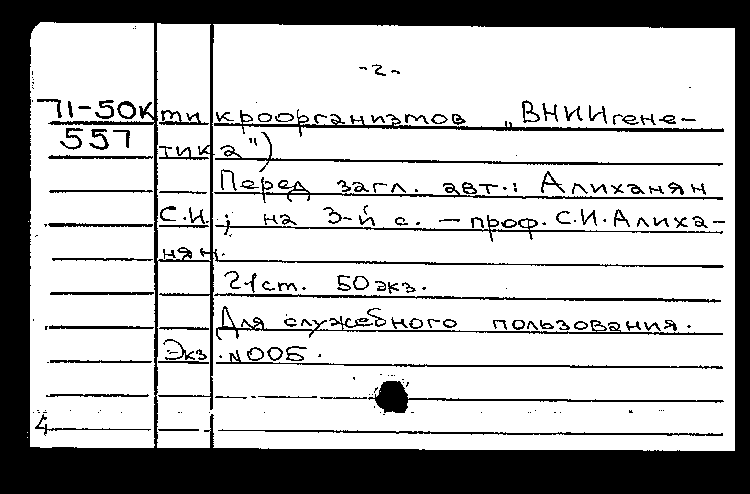 -2-
71-50К микроорганизмов „ВНИИгене-
557 тика")
Перед загл. авт.: Алиханян
С.И.; на 3-й с. - проф. С.И. Алиха-
нян.
21 ст. 50 экз.
Для служебного пользования.
Экз. N005.
4